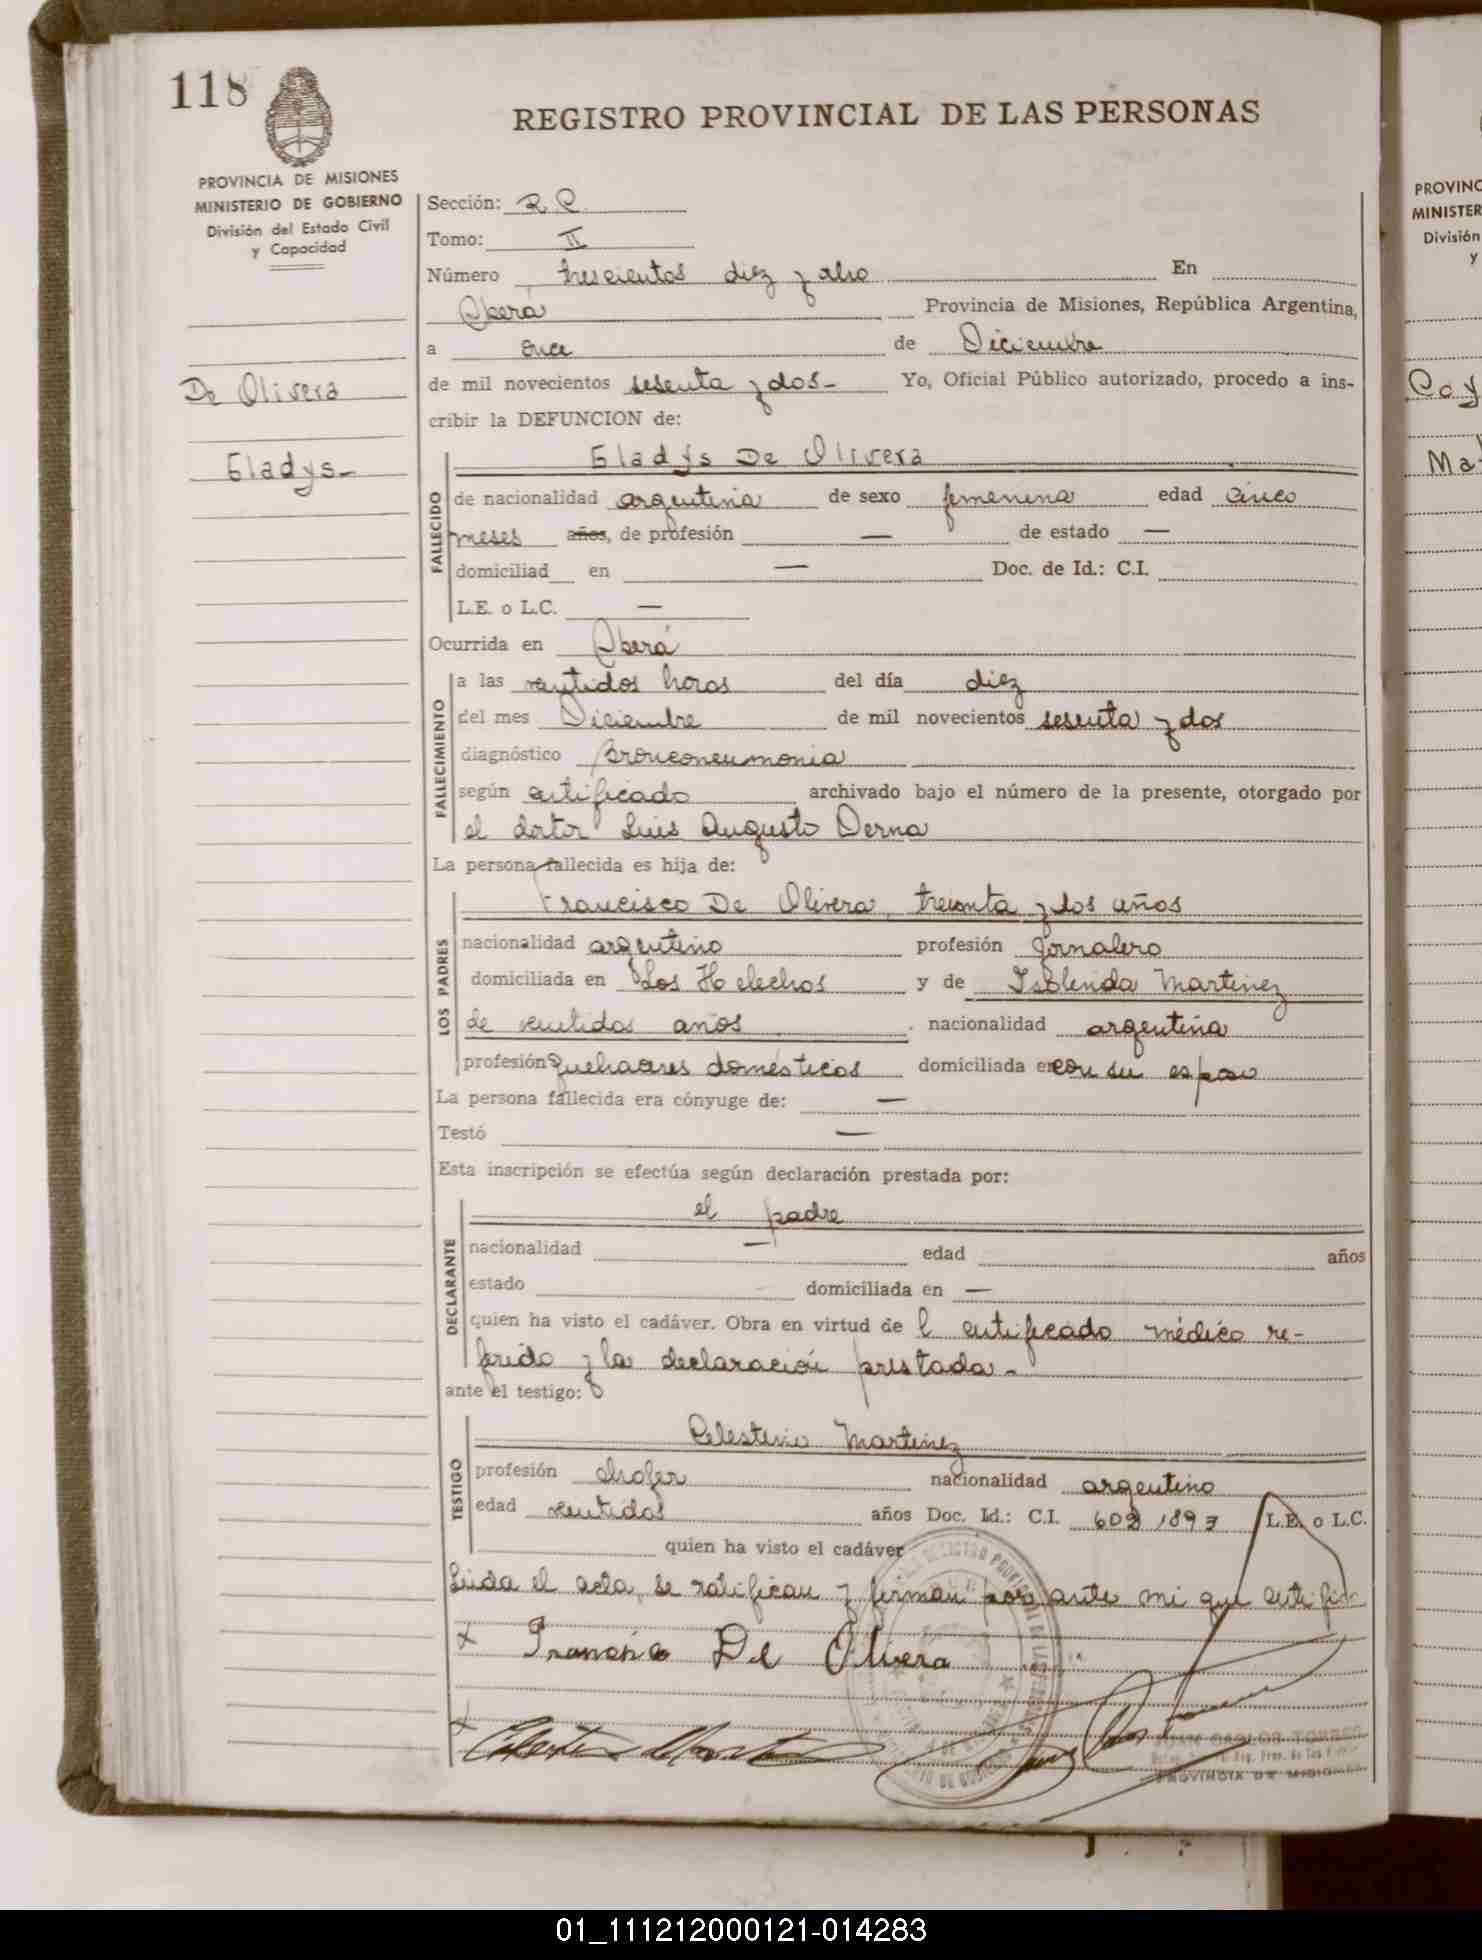 118
REGISTRO PROVINCIAL DE LAS PERSONAS
PROVINCIA DE MISIONES
MINISTERIO DE GOBIERNO
División del Estado Civil
y Capacidad
De Olivera
Gladys-
Sección: R C
Tomo: II
Número trescientos diez y ocho En
Oberá Provincia de Misiones, República Argentina,
a once de Diciembre
de mil novecientos sesenta y dos- Yo, Oficial Público autorizado, procedo a ins-
cribir la DEFUNCION de:
Gladys De Olivera
FALLECIDO
de nacionalidad argentina de sexo femenina edad cinco
meses años, de profesión — de estado —
domiciliad en — Doc. de Id.: C.I.
L.E. o L.C. —
Ocurrida en Oberá
FALLECIMIENTO
a las veintidos horas del día diez
del mes Diciembre de mil novecientos sesenta y dos
diagnóstico Bronconeumonia
según certificado archivado bajo el número de la presente, otorgado por
el doctor Luis Augusto Derna
La persona fallecida es hija de:
LOS PADRES
Francisco De Olivera, treinta y dos años
nacionalidad argentino profesión Jornalero
domiciliada en Los Helechos y de Isolinda Martinez
de veintidos años nacionalidad argentina
profesión Quehaceres domésticos domiciliada en con su esposo
La persona fallecida era cónyuge de: —
Testó —
Esta inscripción se efectúa según declaración prestada por:
DECLARANTE
el padre
nacionalidad — edad años
estado domiciliada en —
quien ha visto el cadáver. Obra en virtud de l certificado médico re-
ferido y la declaración prestada-
ante el testigo:
TESTIGO
Celestino Martinez
profesión chofer nacionalidad argentino
edad veintidos años Doc. Id.: C.I. L.E. o L.C.
quien ha visto el cadáver
Leída el acta, se ratifican y firman por ante mi que certifico
x Francisco De Olivera
x
JUAN CARLOS TORRES
PROVINCIA DE MISIONES
PROVINC
MINISTER
División
y
01_111212000121-014283